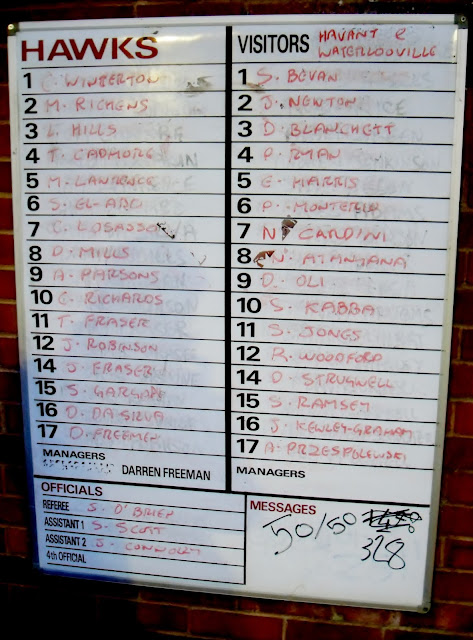 HAWKS
1 C. WINTERTON
2 M. RICHENS
3 L. HILLS
4 T. CADMORE
5 M. LAWRENCE
6 S. EL-ABD
7 C. LOSASSO
8 D. MILLS
9 A. PARSONS
10 C. RICHARDS
11 T. FRASER
12 J. ROBINSON
14 J. FRASER
15 S. GARGAN
16 D. DA SILVA
17 D. FREEMAN
MANAGERS
DARREN FREEMAN
OFFICIALS
REFEREE S. O'BRIEN
ASSISTANT 1 S. SCOTT
ASSISTANT 2 J. CONNOLLY
4th OFFICIAL
VISITORS HAVANT &
WATERLOOVILLE
1 S. BEVAN
2 J. NEWTON
3 D. BLANCHETT
4 P. RYAN
5 E. HARRIS
6 P. MONTERIO
7 N CARDINI
8 N. ATANGANA
9 D. OLI
10 S. KABBA
11 S. JONES
12 R. WOODFORD
14 D. STRUGNELL
15 S. RAMSEY
16 J. KEWLEY-GRAHAM
17 A. PRZESPOLEWSKI
MANAGERS
MESSAGES
50/50
328